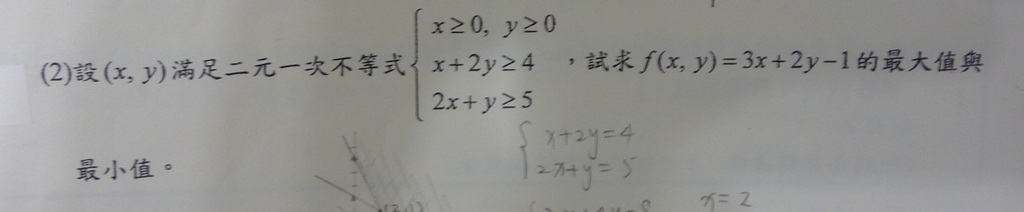 (2)設(x, y)滿足二元一次不等式{x≥0, y≥0
x+2y≥4
2x+y≥5
,試求f(x, y)=3x+2y−1的最大值與
最小值。
{x+2y=4
2x+y=5
x=2